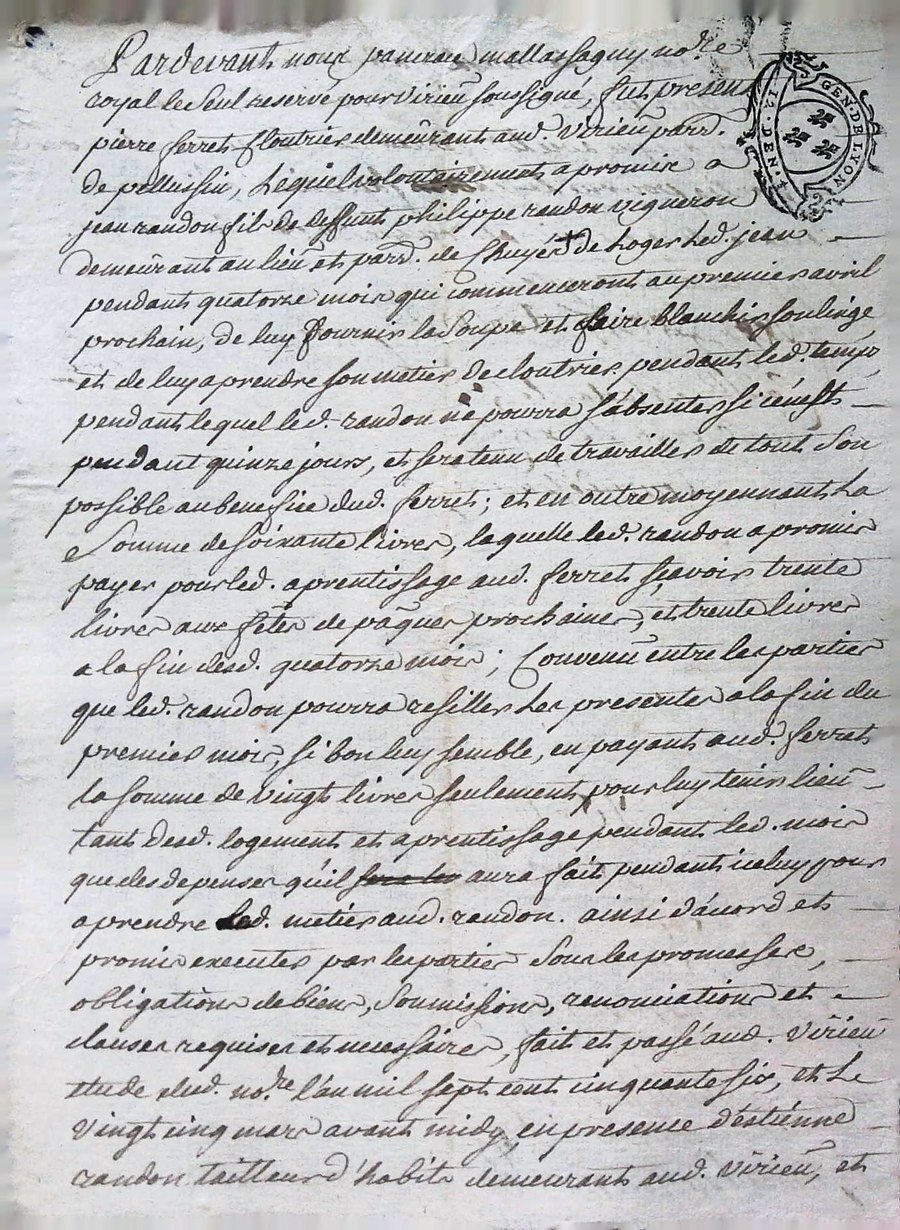 Pardevant nous pancrace mallassagny no.re
GEN. DE LYON
12. DEN. 4
royal le seul reservé pour virieu soussigné, fut present
pierre ferret cloutrier demeurant aud. virieu parr.
de pellussin, lequel volontairement a promis a
jean randon fils de deffunt philippe randon vigneron
demeurant au lieu et parr. de Chuyer + de loger led. jean
pendant quatorze mois qui commenceront au premier avril
prochain, de luy fournir la soupe et faire blanchir son linge
et de luy aprendre son metier de cloutrier pendant led. temps
pendant lequel led. randon ne pourra s'absenter si ce n'est
pendant quinze jours, et sera tenu de travailler de tout son
possible au benefice dud. ferret; et en outre moyennant la
somme de soixante livres, laquelle led. randon a promis
payer pour led. aprentissage aud. ferret sçavoir trente
livres aux fêtes de pâques prochaines, et trente livres
a la fin desd. quatorze mois; Convenu entre les parties
que led. randon pourra resiller les presentes a la fin du
premier mois, si bon luy semble, en payant aud. ferret
la somme de vingt livres seulement pour luy tenir lieu
tant desd. logement et aprentissage pendant led. mois
que des depenses qu'il aura fait pendant iceluy pour
aprendre led. metier aud. randon. ainsi d'acord et
promis executer par les parties sous les promesses,
obligations de biens, soumissions, renonciations et
clauses requises et necessaires, fait et passé aud. virieu
etude dud. no.re l'an mil sept cent cinquante six, et le
vingt cinq mars avant midy, en presence d'estienne
randon tailleur d'habits demeurant aud. virieu, et